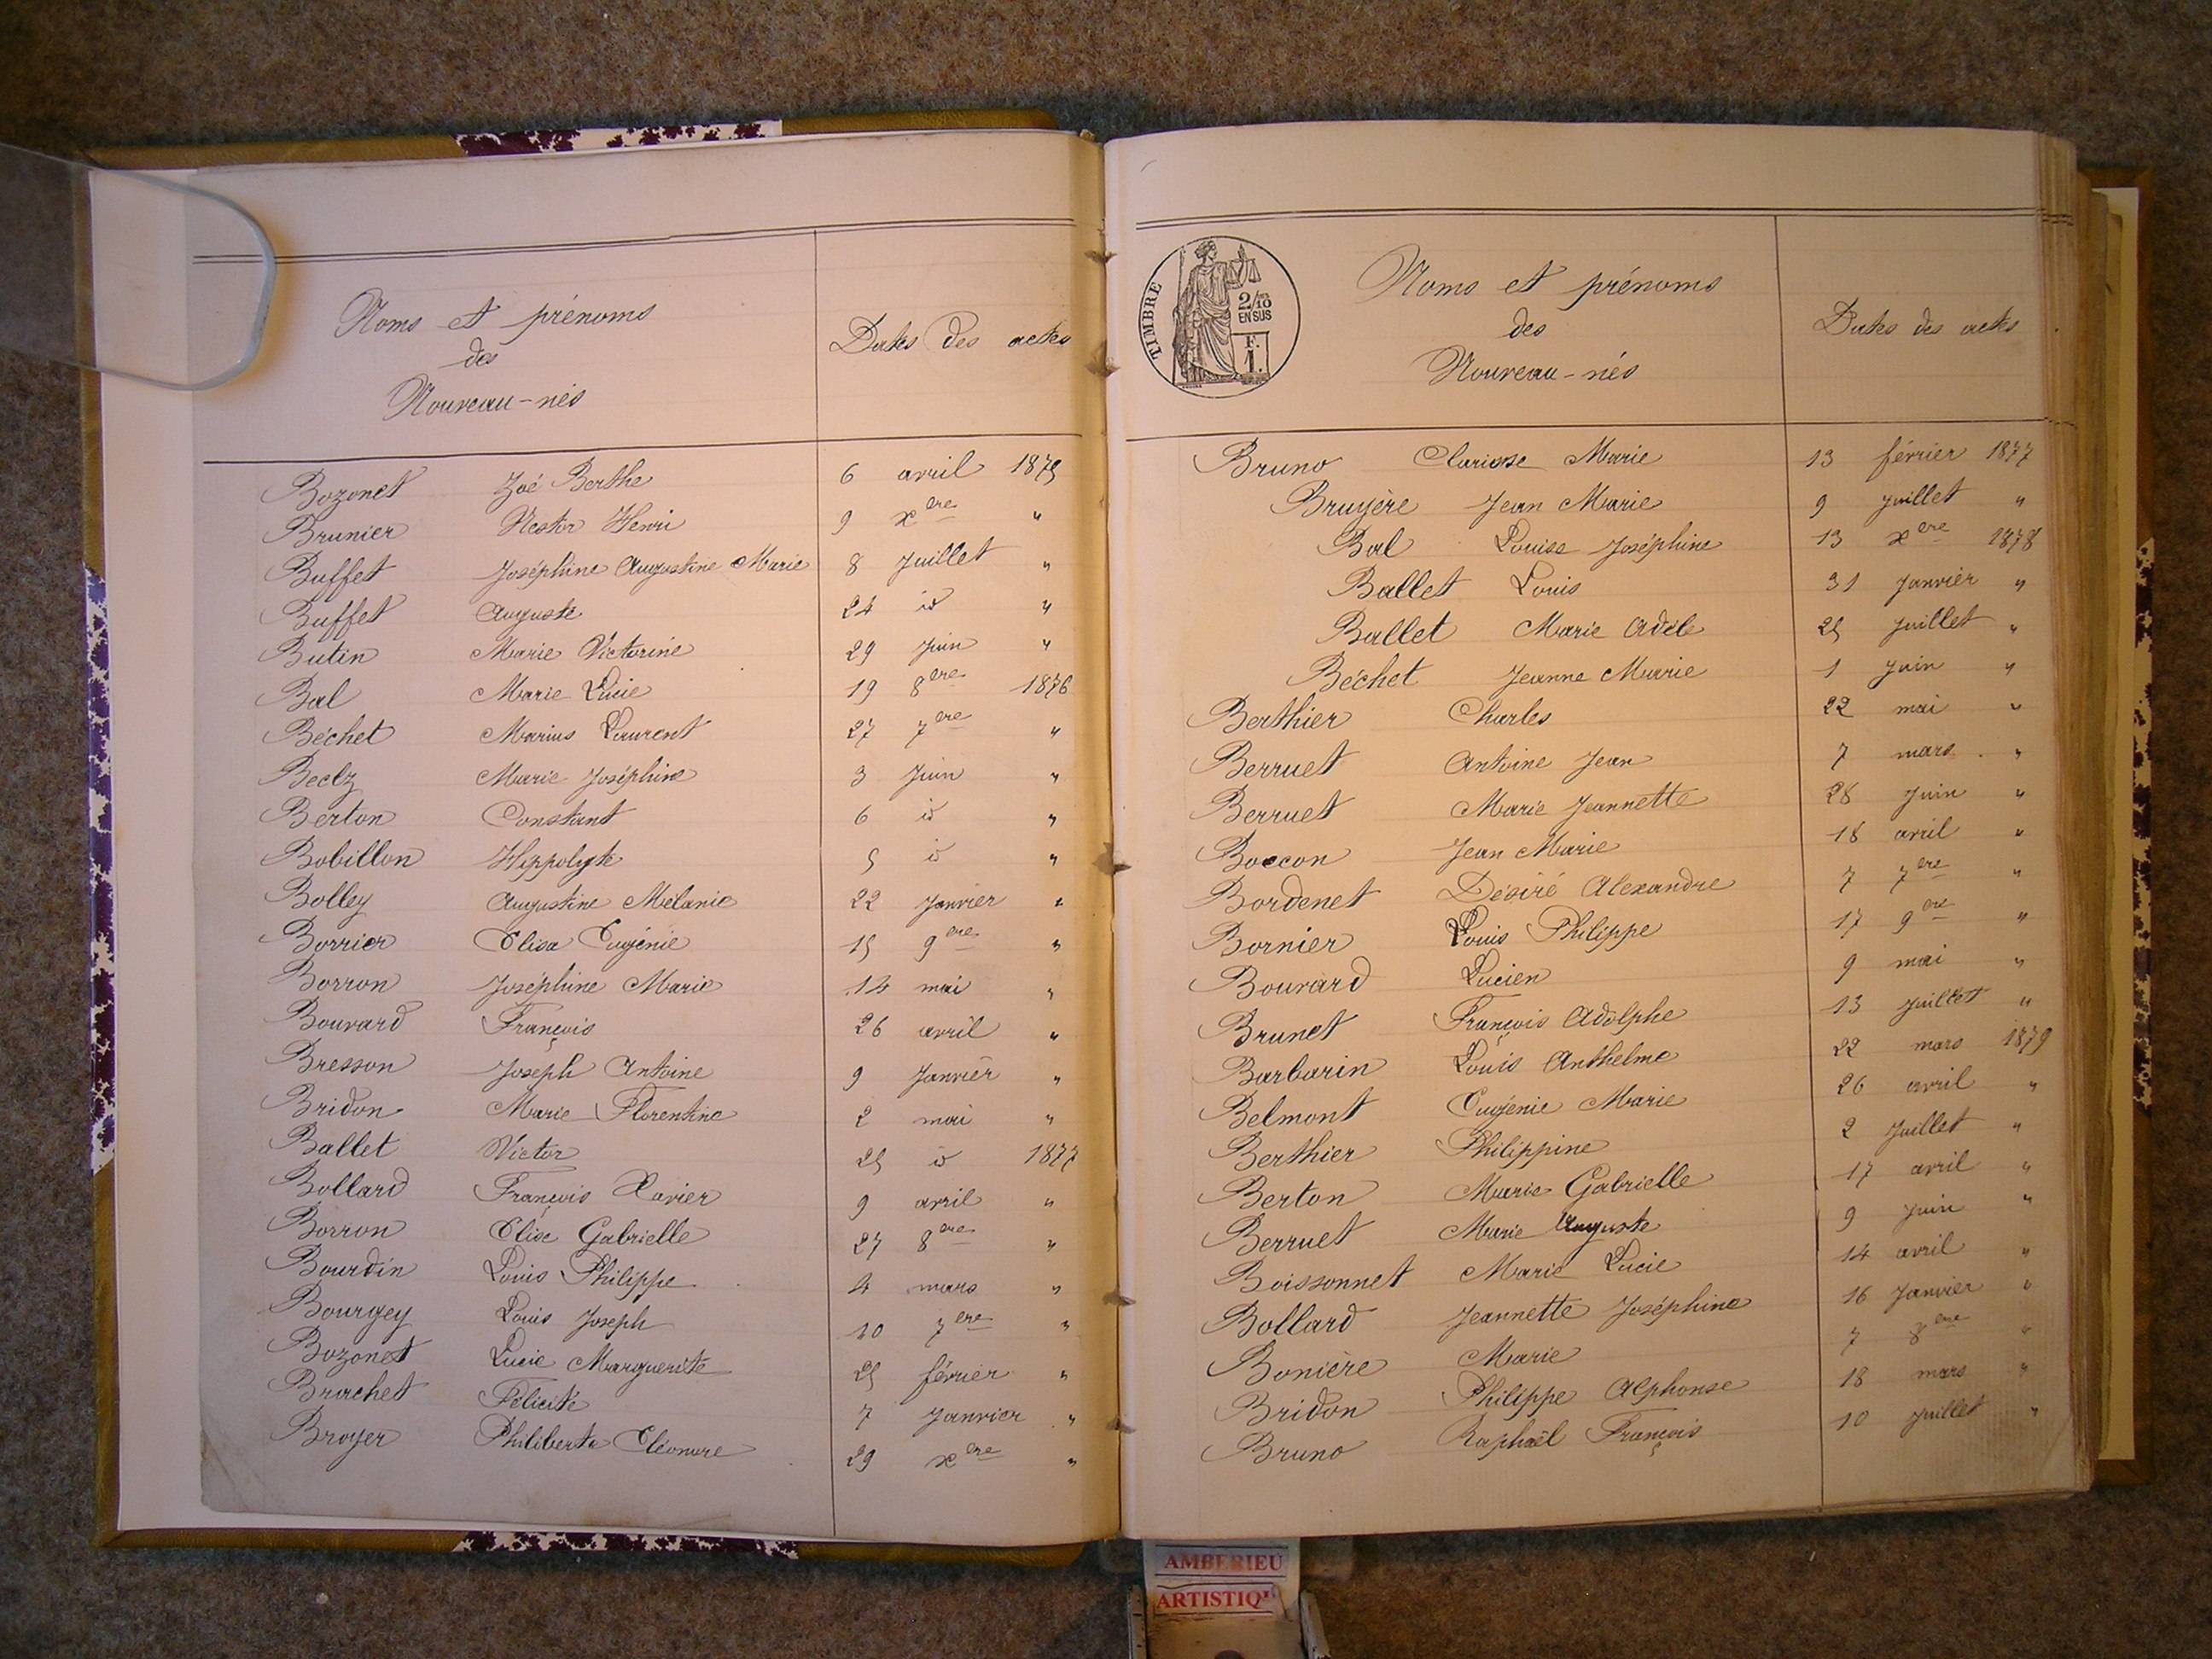 Noms et prénoms
des
Nouveau-nés
Dates des actes
Bozonet Zoé Berthe 6 avril 1875
Brunier Nestor Henri 9 xere "
Buffet Joséphine Augustine Marie 8 Juillet "
Buffet Auguste 24 id "
Butin Marie Victorine 29 Juin "
Bal Marie Lucie 19 8ere 1876
Béchet Marius Laurent 27 7ere "
Beelz Marie Joséphine 3 Juin "
Berton Constant 6 id "
Bobillon Hippolyte 5 id "
Bolley Augustine Mélanie 22 Janvier "
Borrier Elisa Eugénie 15 9ere "
Borron Joséphine Marie 14 mai "
Bouvard François 26 avril "
Bresson Joseph Antoine 9 Janvier "
Bridon Marie Florentine 2 mai "
Ballet Victor 25 id 1877
Bollard François Xavier 9 avril "
Borron Elise Gabrielle 27 8ere "
Bourdin Louis Philippe 4 mars "
Bourgey Louis Joseph 10 7ere "
Bozonet Lucie Marguerite 25 février "
Brachet Félicité 7 Janvier "
Broyer Philiberte Eléonore 29 xere "
TIMBRE
2/10 EN SUS
F. 1.
Noms et prénoms
des
Nouveau-nés
Dates des actes
Bruno Clarisse Marie 13 février 1877
Bruyère Jean Marie 9 Juillet "
Bal Louise Joséphine 13 xere 1878
Ballet Louis 31 Janvier "
Ballet Marie Adèle 25 Juillet "
Béchet Jeanne Marie 1 Juin "
Berthier Charles 22 mai "
Berruet Antoine Jean 7 mars "
Berruet Marie Jeannette 28 Juin "
Boccon Jean Marie 18 avril "
Bordenet Désiré Alexandre 7 7ere "
Bornier Louis Philippe 17 9ere "
Bouvard Lucien 9 mai "
Brunet François Adolphe 13 Juillet "
Barbarin Louis Anthelme 22 mars 1879
Belmont Eugénie Marie 26 avril "
Berthier Philippine 2 Juillet "
Berton Marie Gabrielle 17 avril "
Berruet Marie Auguste 9 Juin "
Boissonnet Marie Lucie 14 avril "
Bollard Jeannette Joséphine 16 Janvier "
Bonière Marie 7 8ere "
Bridon Philippe Alphonse 18 mars "
Bruno Raphaël François 10 Juillet "
AMBERIEU
ARTISTIQU